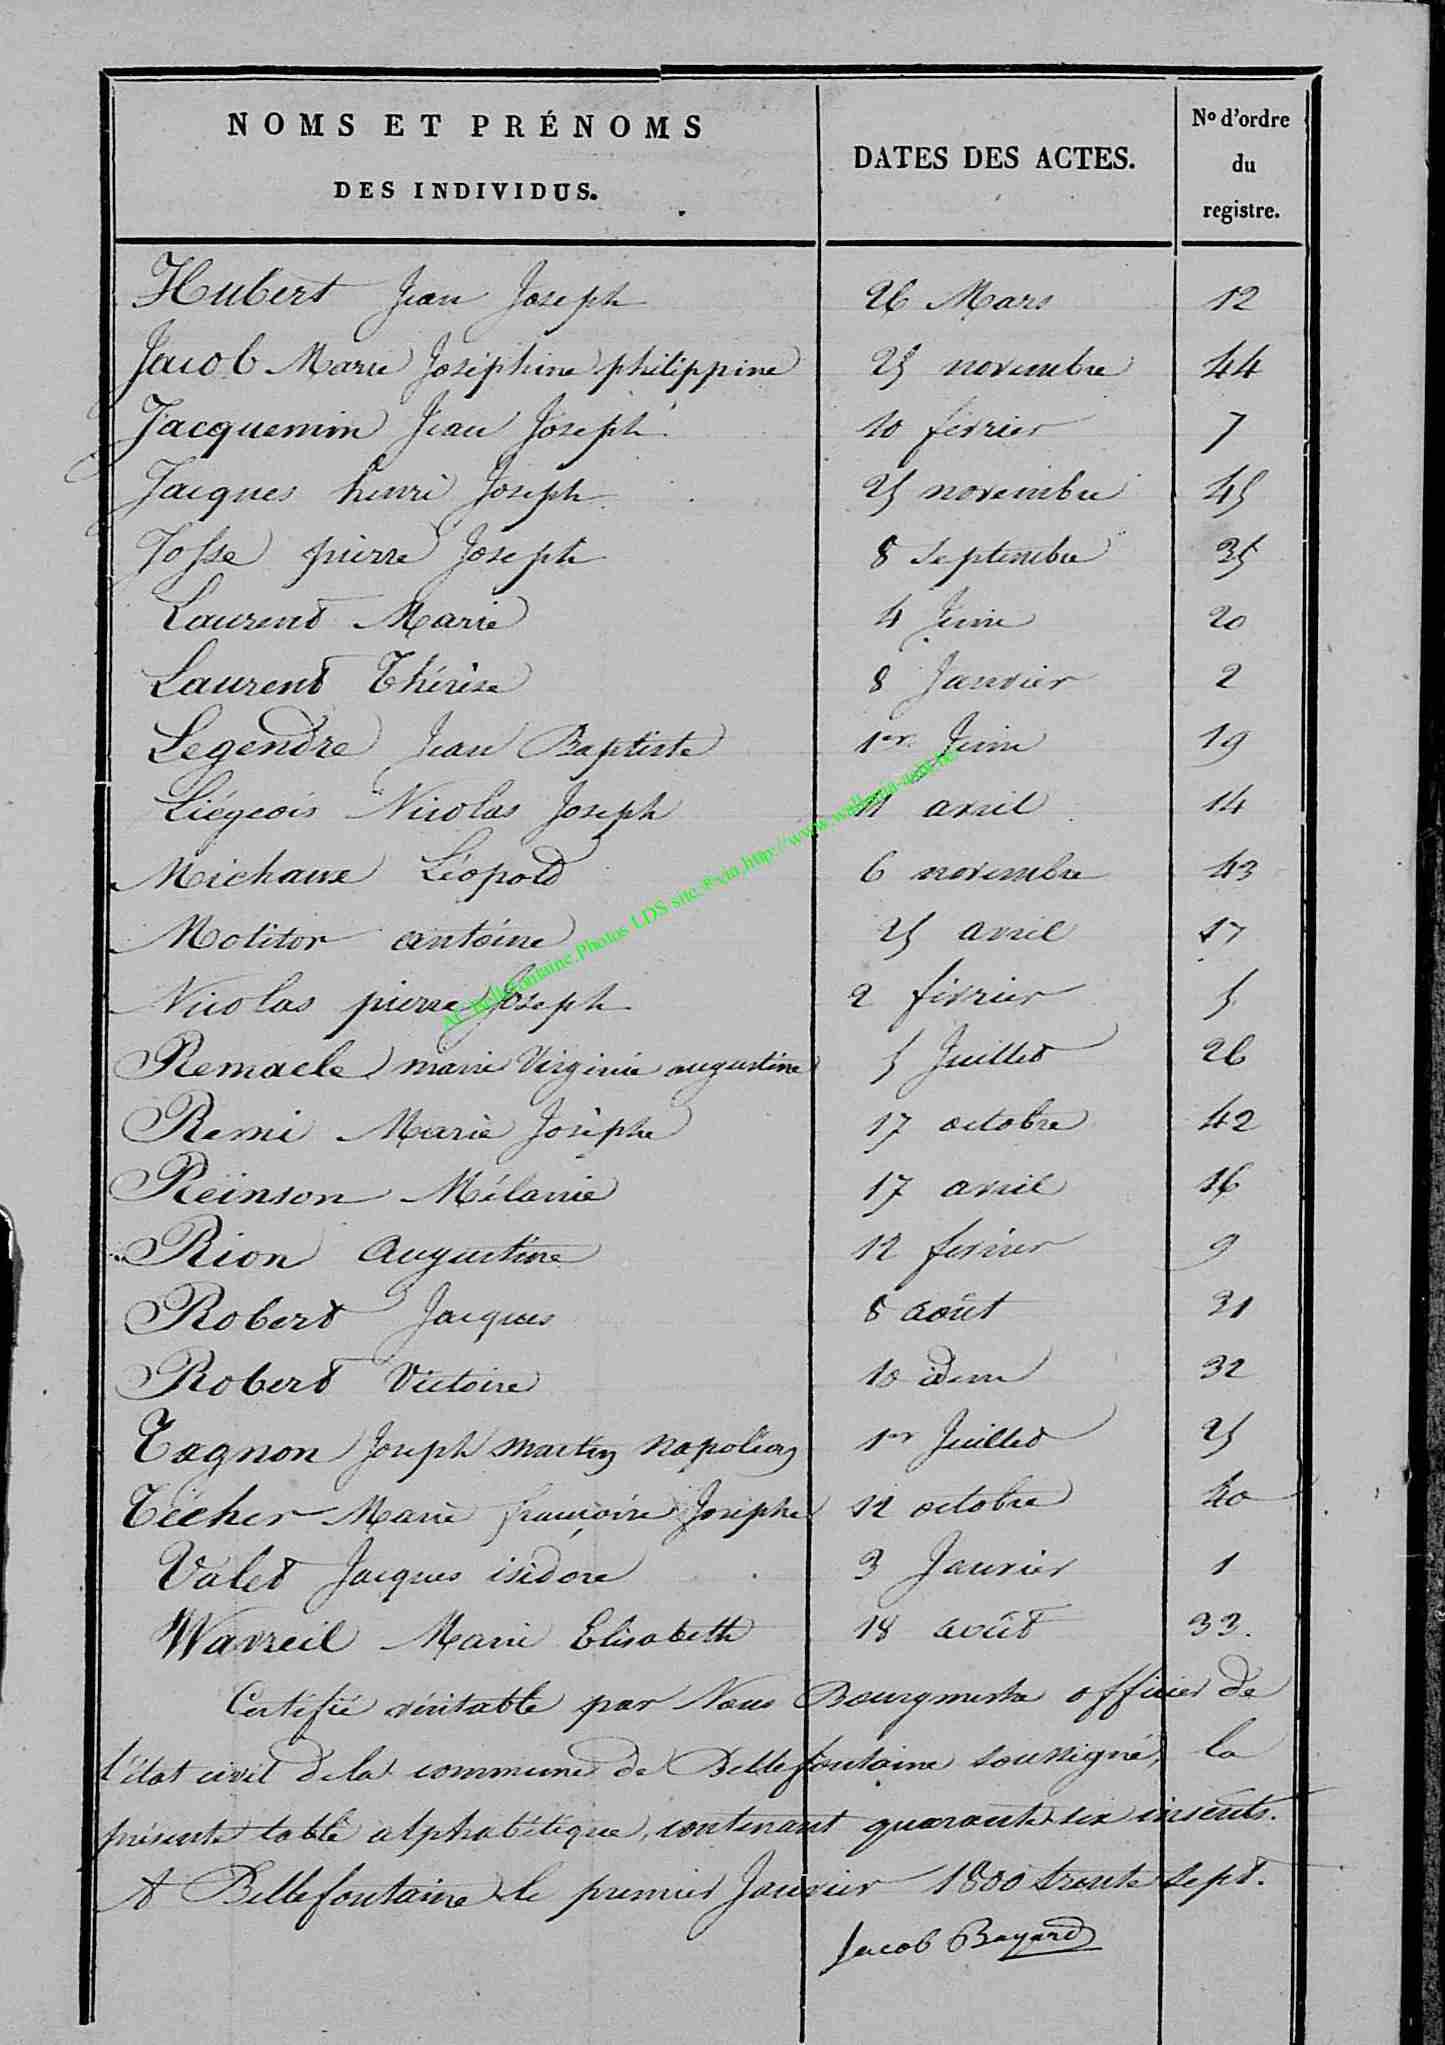 NOMS ET PRÉNOMS DES INDIVIDUS. DATES DES ACTES. No d'ordre du registre.
Hubert Jean Joseph 26 Mars 12
Jacob Marie Joséphine philippine 25 novembre 44
Jacquemin Jean Joseph 10 février 7
Jacques henri Joseph 25 novembre 45
Josse pierre Joseph 8 Septembre 35
Laurent Marie 4 Juin 20
Laurent Thérèse 8 Janvier 2
Legendre Jean Baptiste 1er Juin 19
Liégeois Nicolas Joseph 11 avril 14
Michaux Léopold 6 novembre 43
Molitor antoine 25 avril 17
Nicolas pierre Joseph 2 février 5
Remacle marie Virginie augustine 5 Juillet 26
Remi Marie Josephe 17 octobre 42
Reinson Mélanie 17 avril 16
Rion Augustine 12 février 9
Robert Jacques 8 août 31
Robert Victoire 10 idem 32
Tagnon Joseph Martin Napoléon 1er Juillet 25
Técher Marie françoise Josephe 12 octobre 40
Valet Jacques isidore 3 Janvier 1
Wavreil Marie Elisabeth 18 août 33.
Certifié véritable par Nous Bourgmestre officier de
l'état civil de la commune de Bellefontaine soussigné, la
présente table alphabétique, contenant quarante six inscrits.
A Bellefontaine le premier Janvier 1800 trente sept.
Jacob Bayard
AC Bellefontaine.Photos LDS site.®via,http://www.wallonia-asbl.be/